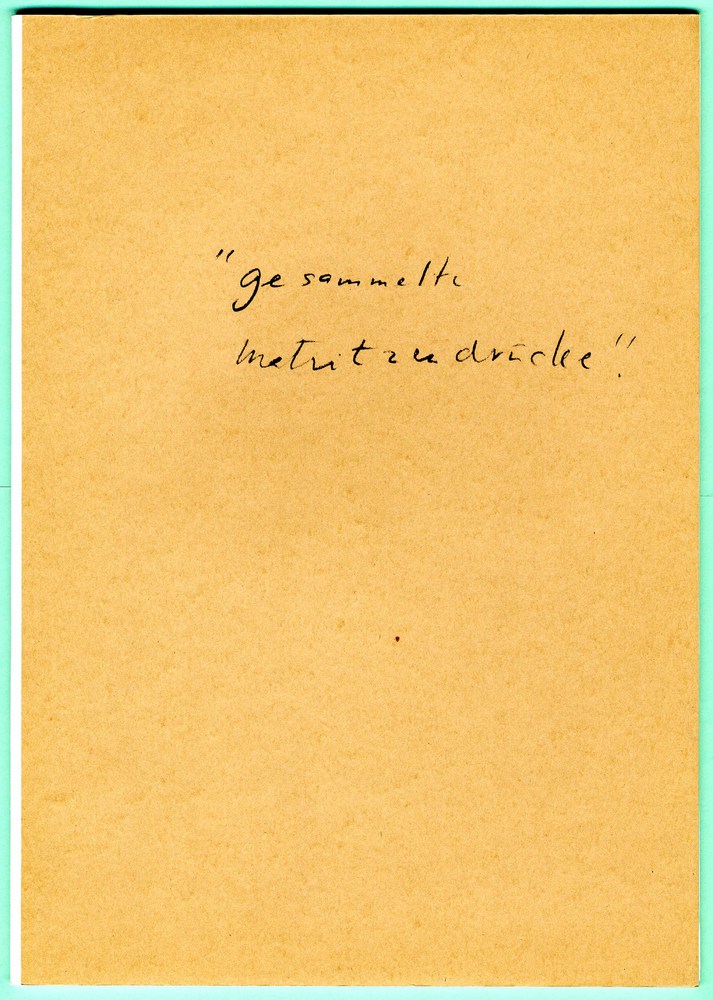 "gesammelte
matritzendrücke".